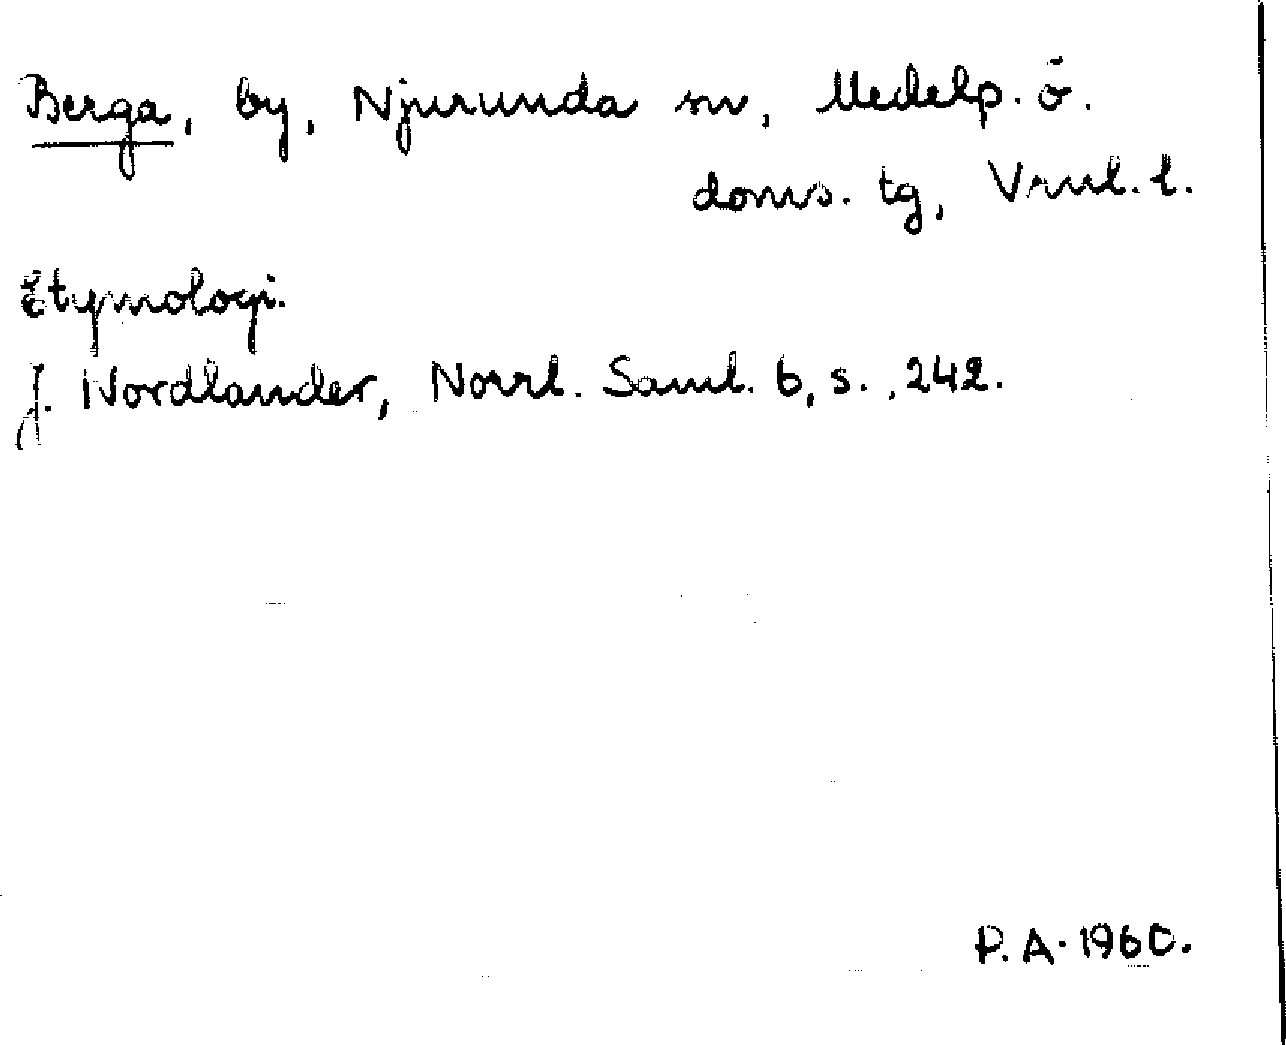 Berga, by, Njurunda sn, Medelp. ö.
doms. tg, Vnrl. l.
Etymologi.
J. Nordlander, Norrl. Saml. 6, s. 242.
P. A. 1960.